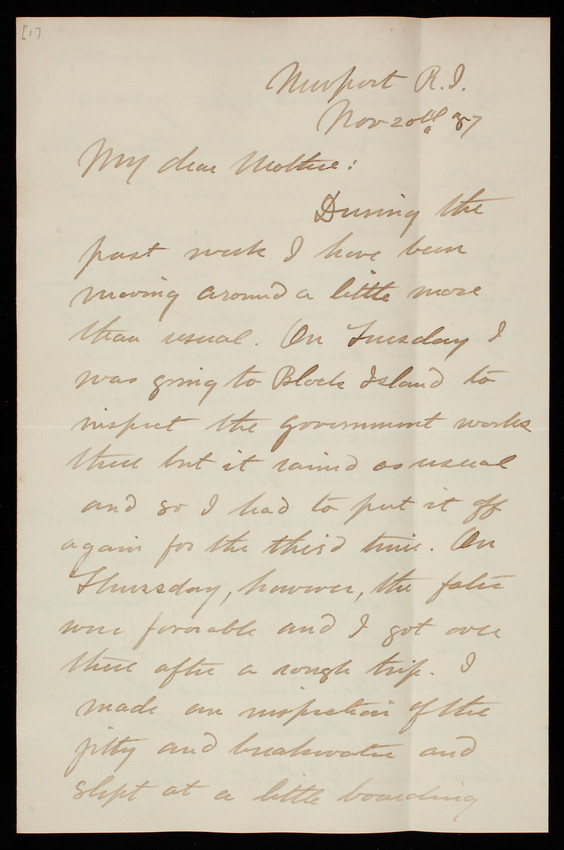 [1]
Newport R.I.
Nov 20th 87
My dear Mother:
During the
past week I have been
moving around a little more
than usual. On Tuesday I
was going to Block Island to
inspect the government works
there but it rained as usual
and so I had to put it off
again for the third time. On
Thursday, however, the fates
were favorable and I got over
there after a rough trip. I
made an inspection of the
jitty and breakwater and
slept at a little boarding